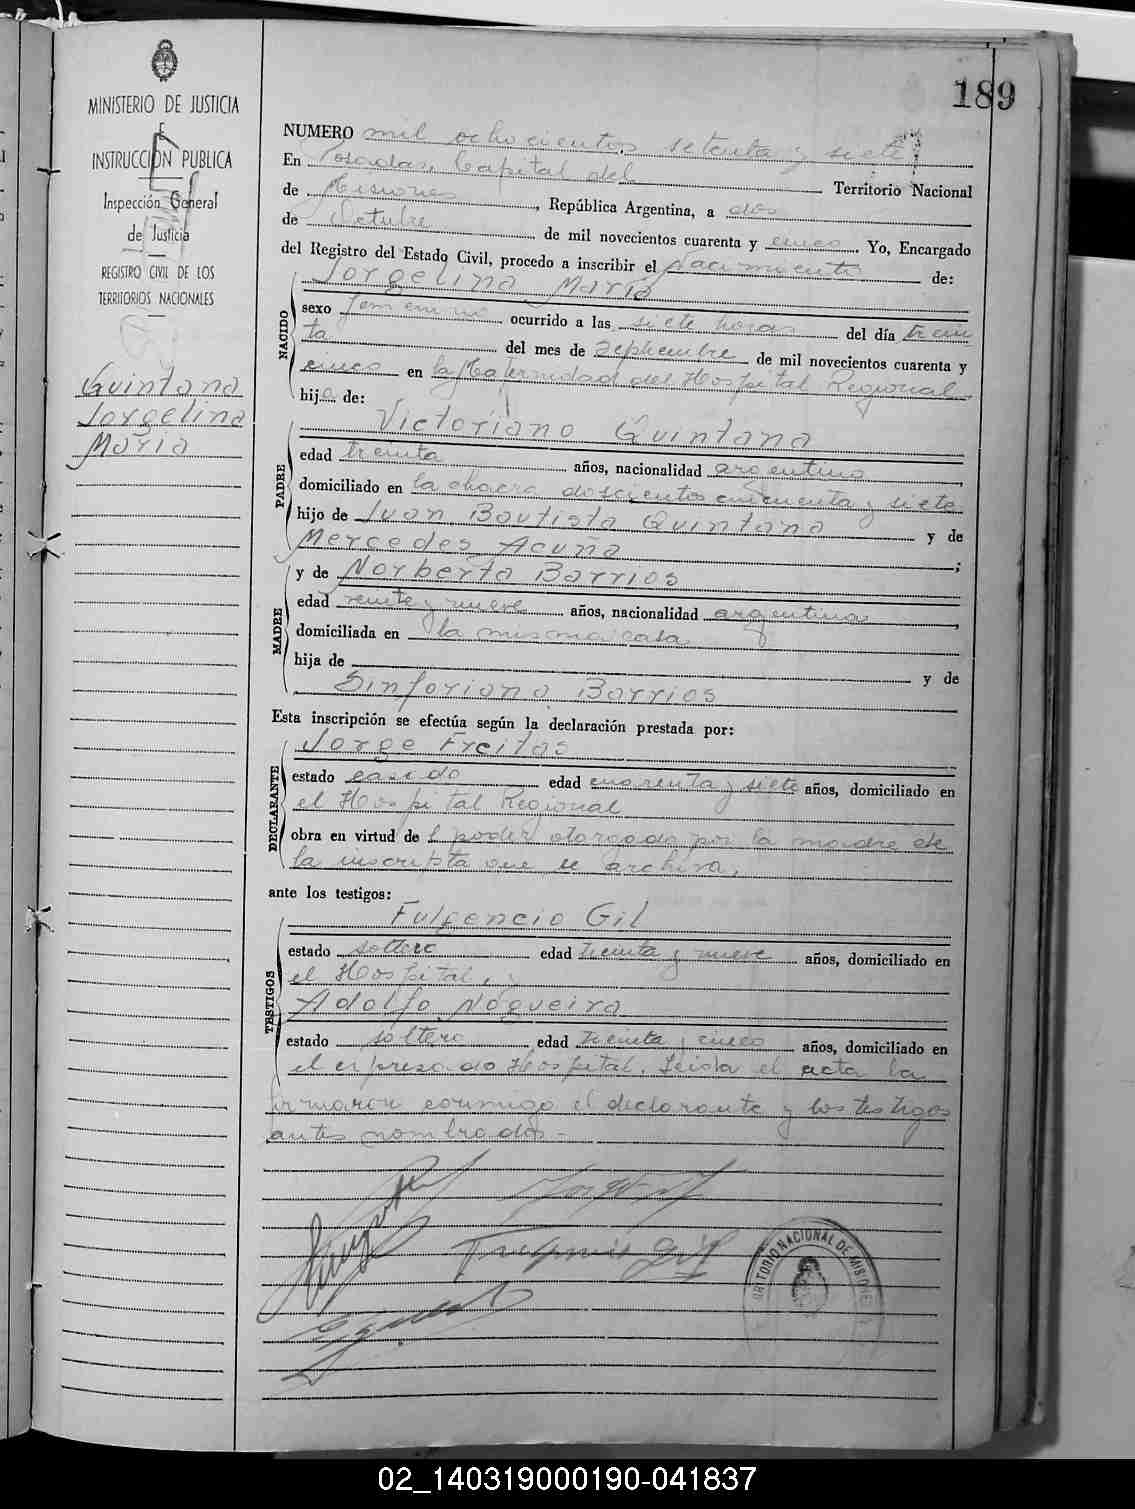 189
MINISTERIO DE JUSTICIA
E
INSTRUCCIÓN PUBLICA
Inspección General
de Justicia
REGISTRO CIVIL DE LOS
TERRITORIOS NACIONALES
Quintana
Jorgelina
Maria
NUMERO mil ochocientos setenta y siete
En Posadas, Capital del Territorio Nacional
de Misiones, República Argentina, a dos
de Octubre de mil novecientos cuarenta y cinco. Yo, Encargado
del Registro del Estado Civil, procedo a inscribir el Nacimiento de:
Jorgelina Maria
NACIDO
sexo femenino ocurrido a las siete horas del día trein
ta del mes de Septiembre de mil novecientos cuarenta y
cinco en la Maternidad del Hospital Regional
hija de:
Victoriano Quintana
PADRE
edad treinta años, nacionalidad argentino,
domiciliado en la chacra doscientos cincuenta y siete
hijo de Juan Bautista Quintana y de
Mercedes Acuña;
y de Norberta Barrios
MADRE
edad veinte y nueve años, nacionalidad argentina,
domiciliada en la misma casa
hija de y de
Sinforiana Barrios
Esta inscripción se efectúa según la declaración prestada por:
Jorge Freitas
DECLARANTE
estado casado edad cuarenta y siete años, domiciliado en
el Hospital Regional
obra en virtud del poder otorgado por la madre de
la inscripta que se archiva.
ante los testigos:
Fulgencio Gil
TESTIGOS
estado soltero edad treinta y nueve años, domiciliado en
el Hospital, y
Adolfo Nogueira
estado soltero edad treinta y cinco años, domiciliado en
el expresado Hospital. Leida el acta la
firmaron conmigo el declarante y los testigos
antes nombrados.-
Fulgencio Gil
TERRITORIO NACIONAL DE MISIONES
02_140319000190-041837